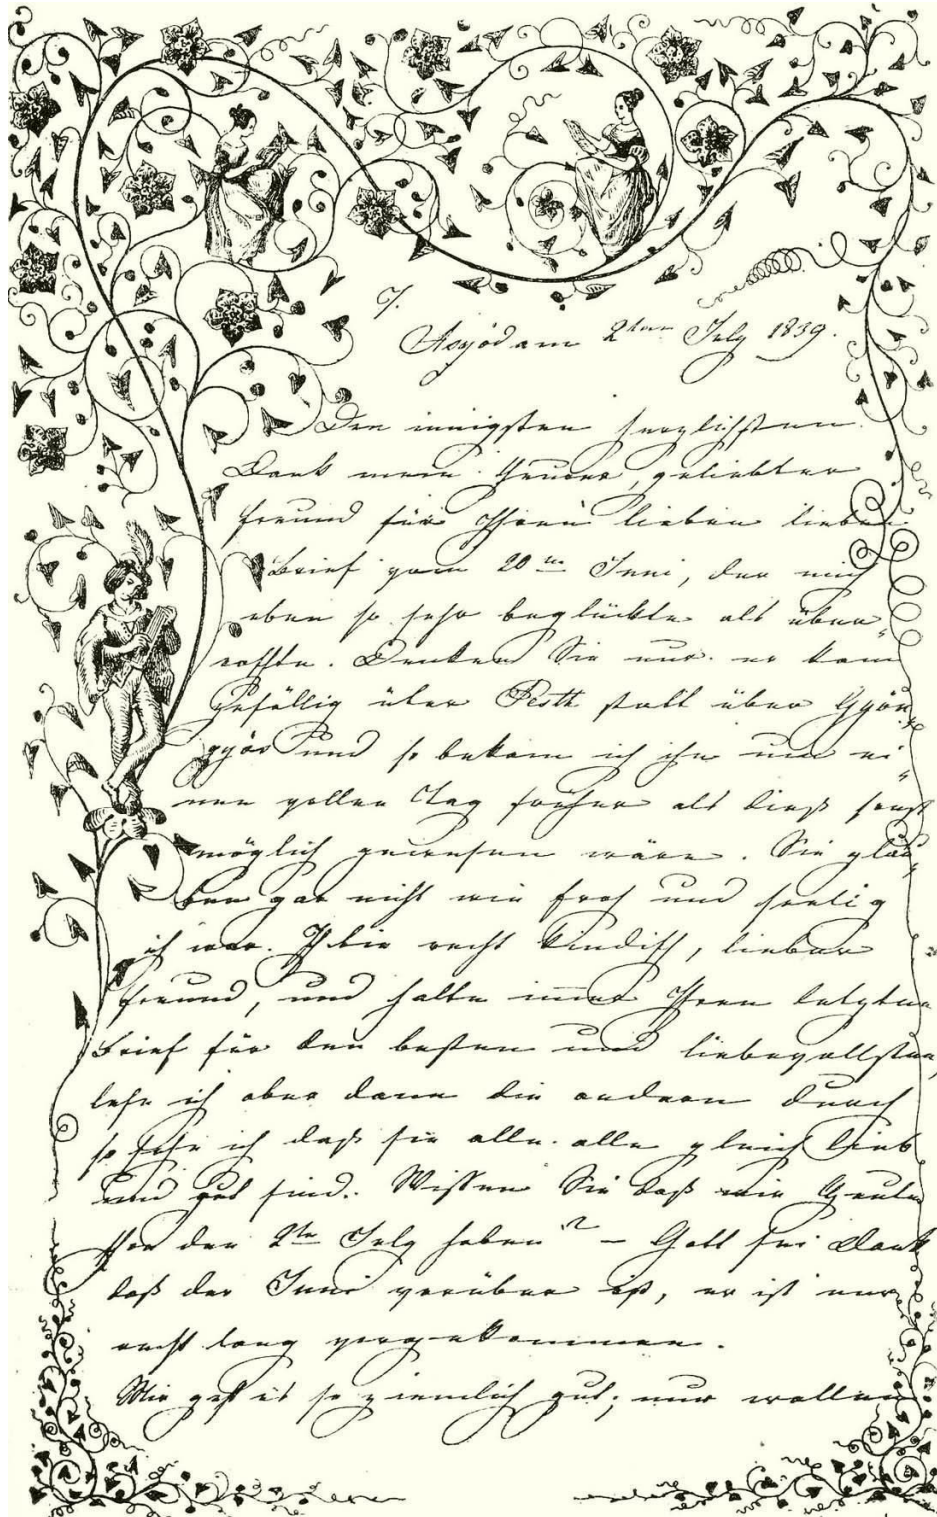 7.
Aszód am 2ten July 1839.
Den innigsten herzlichsten
Dank mein theurer, geliebter
Freund für Ihren lieben lieben
Brief vom 20ten Juni, der mich
eben so sehr beglückte als über„
raschte. Denken Sie nur er kam
zufällig über Pesth statt über Gyön„
gyös und so bekam ich ihn um ei„
nen vollen Tag früher als dieß sonst
möglich gewesen wäre. Sie glau„
ben gar nicht wie froh und seelig
ich war. Ich bin recht kindisch, lieber
Freund, und halte immer Ihren letzten
Brief für den besten und liebevollsten,
lese ich aber dann die andern durch
so sehe ich daß sie alle alle gleich lieb
und gut sind. Wissen Sie daß wir heute
schon den 2te July haben? – Gott sei Dank
daß der Juni vorüber ist, er ist mir
recht lang vorgekommen.
Mir geht es so ziemlich gut; nur wollen